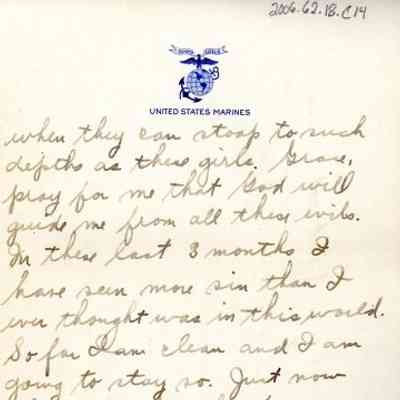 2006.62.18.c14
UNITED STATES MARINES
when they can stoop to such
depths as these girls. Grace,
pray for me that God will
guide me from all these evils.
In these last 3 months I
have seen more sin than I
ever thought was in this world.
So far I am clean and I am
going to stay so. Just now